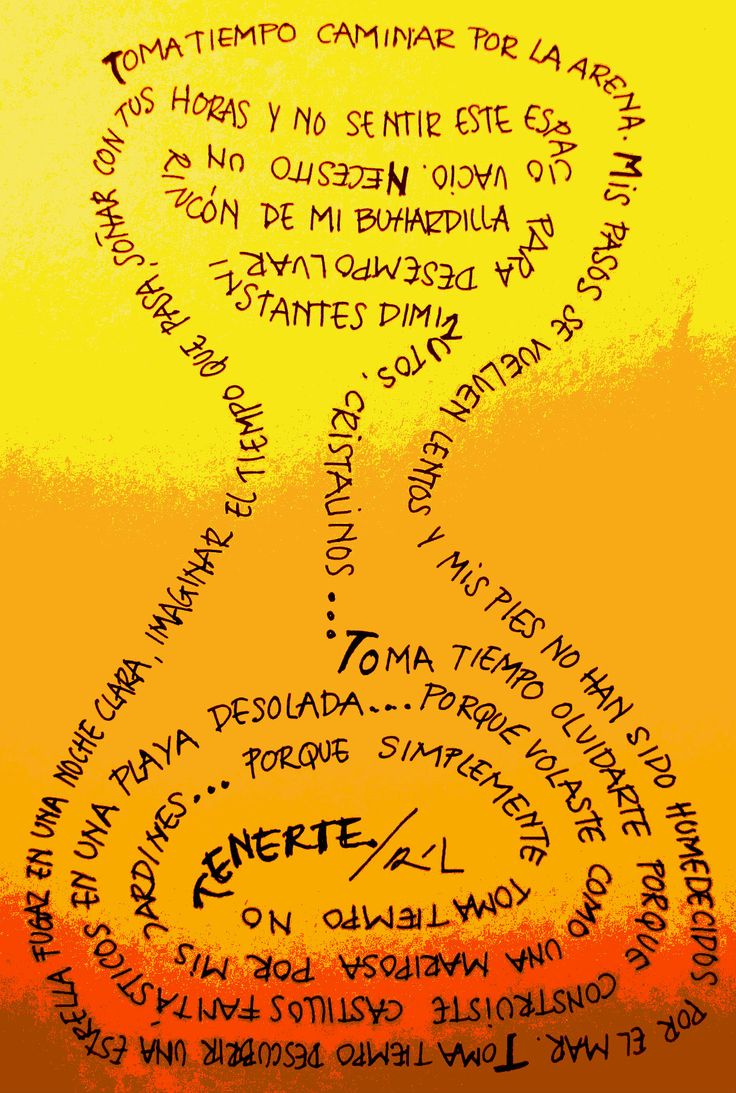 TOMA TIEMPO CAMINAR POR LA ARENA. MIS PASOS SE VUELVEN LENTOS Y MIS PIES NO HAN SIDO HUMEDECIDOS POR EL MAR.
TOMA TIEMPO DESCUBRIR UNA ESTRELLA FUGAZ EN UNA NOCHE CLARA, IMAGINAR EL TIEMPO QUE PASA, SOÑAR CON TUS HORAS Y NO SENTIR ESTE ESPACIO VACIO.
NECESITO UN RINCÓN DE MI BUHARDILLA PARA DESEMPOLVAR INSTANTES DIMINUTOS, CRISTALINOS...
TOMA TIEMPO OLVIDARTE PORQUE CONSTRUISTE CASTILLOS FANTÁSTICOS EN UNA PLAYA DESOLADA... PORQUE VOLASTE COMO UNA MARIPOSA POR MIS JARDINES... PORQUE SIMPLEMENTE TOMA TIEMPO NO TENERTE.